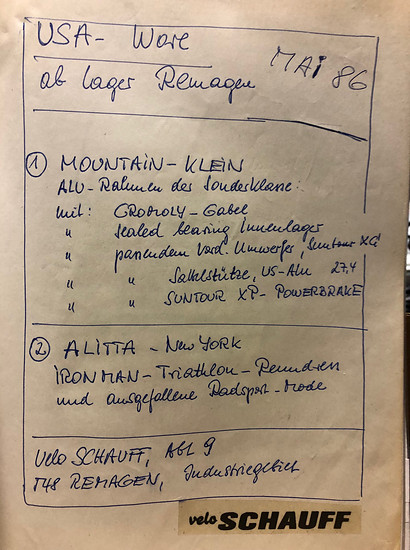 USA- Ware
ab Lager Remagen
MAi 86
① MOUNTAiN-KLEiN
ALU-Rahmen der Sonderklasse:
mit: CROMOLY-Gabel
" sealed bearing Innenlager
" passendem vord. Umwerfer, Suntour XC
" " Sattelstütze, US-Alu 27,4
" " SUNTOUR XP-POWERBRAKE
② ALiTTA - New YORK
iRONMAN-Triathlon-Renndress
und ausgefallene Radsport-Mode
Velo SCHAUFF, Abt. 9
548 REMAGEN, Industriegebiet
velo SCHAUFF